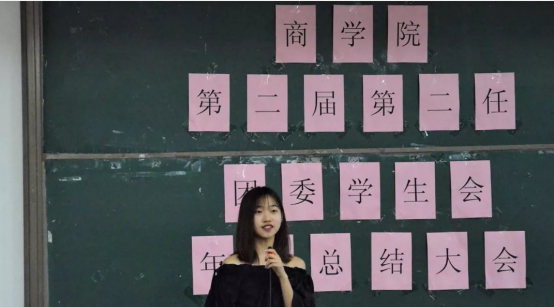 商学院
第二届第二任
团委学生会
年总结大会